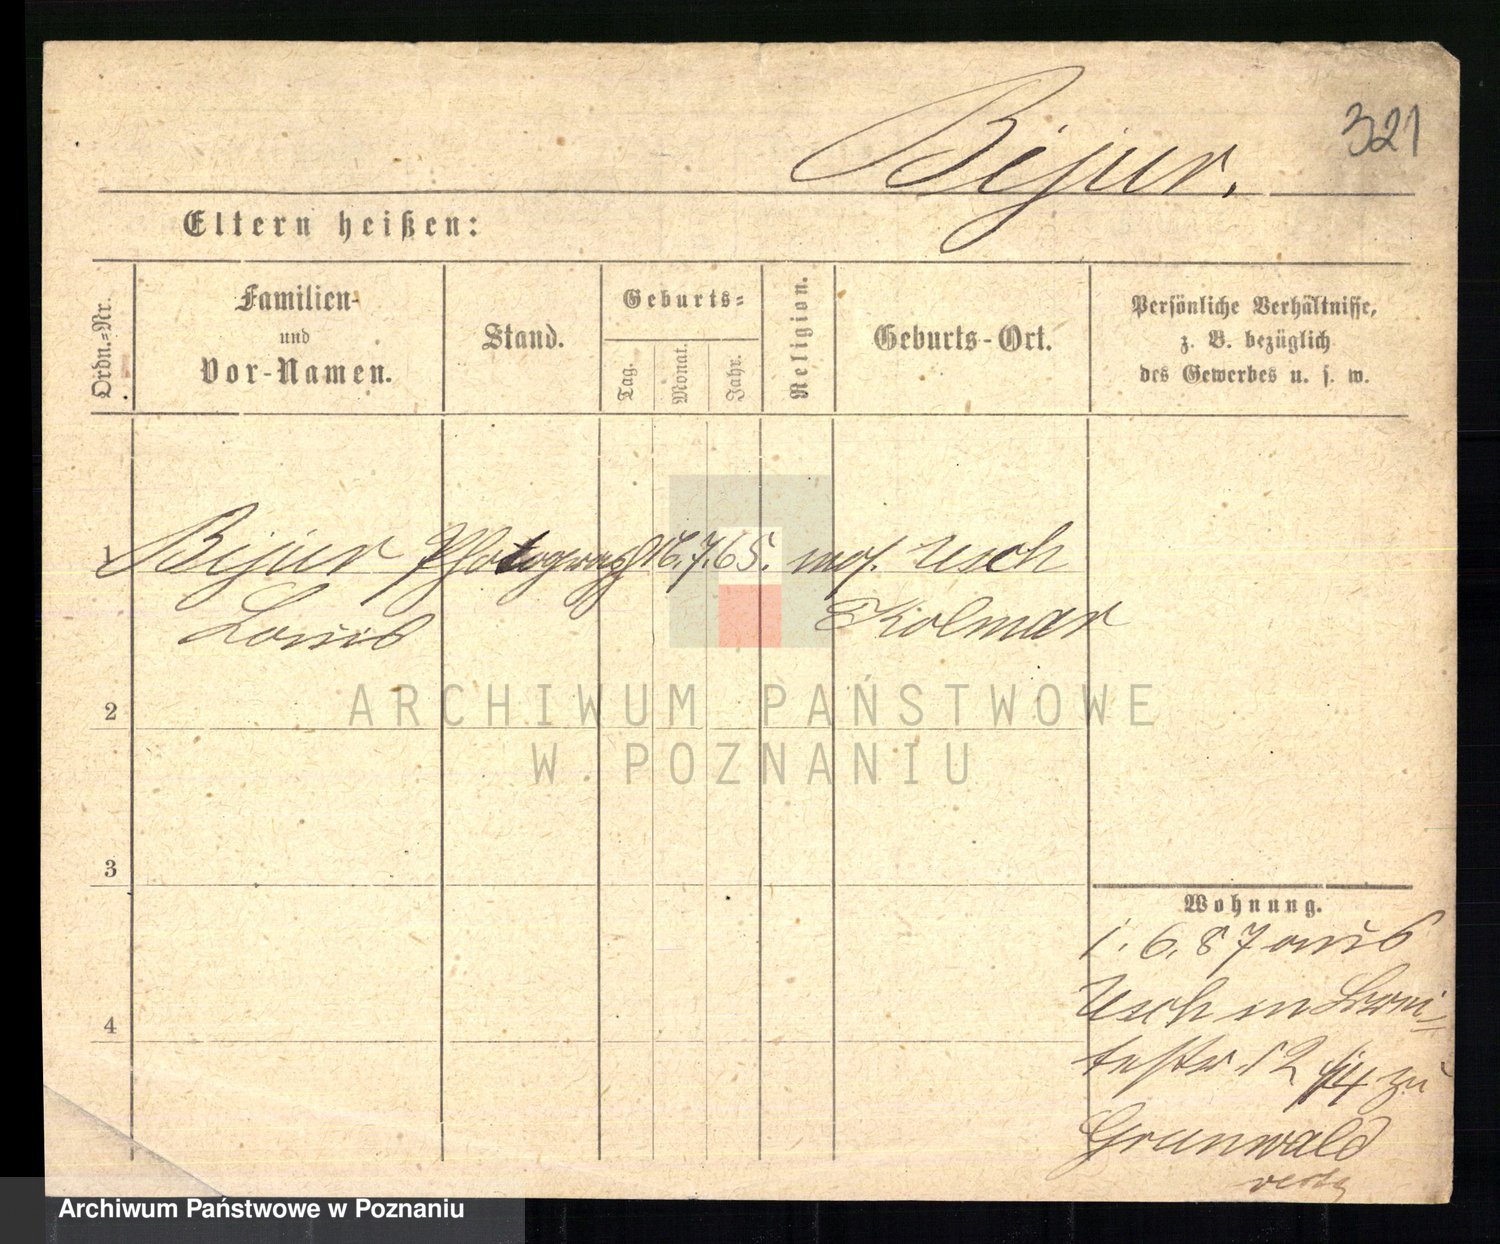 Bejur.
321
Eltern heißen:
Ordn.-Nr.
Familien-
und
Vor-Namen.
Stand.
Geburts-
Tag.
Monat.
Jahr.
Religion.
Geburts-Ort.
Persönliche Verhältnisse,
z. B. bezüglich
des Gewerbes u. s. w.
1 Bejur Photograph 16.7.65. mos. Usch
Louis Kolmar
ARCHIWUM PAŃSTWOWE
W POZNANIU
2
3
4
Wohnung.
1.6.87 aus
Usch in Brei-
testr. 12 zu
Grunwald
Archiwum Państwowe w Poznaniu